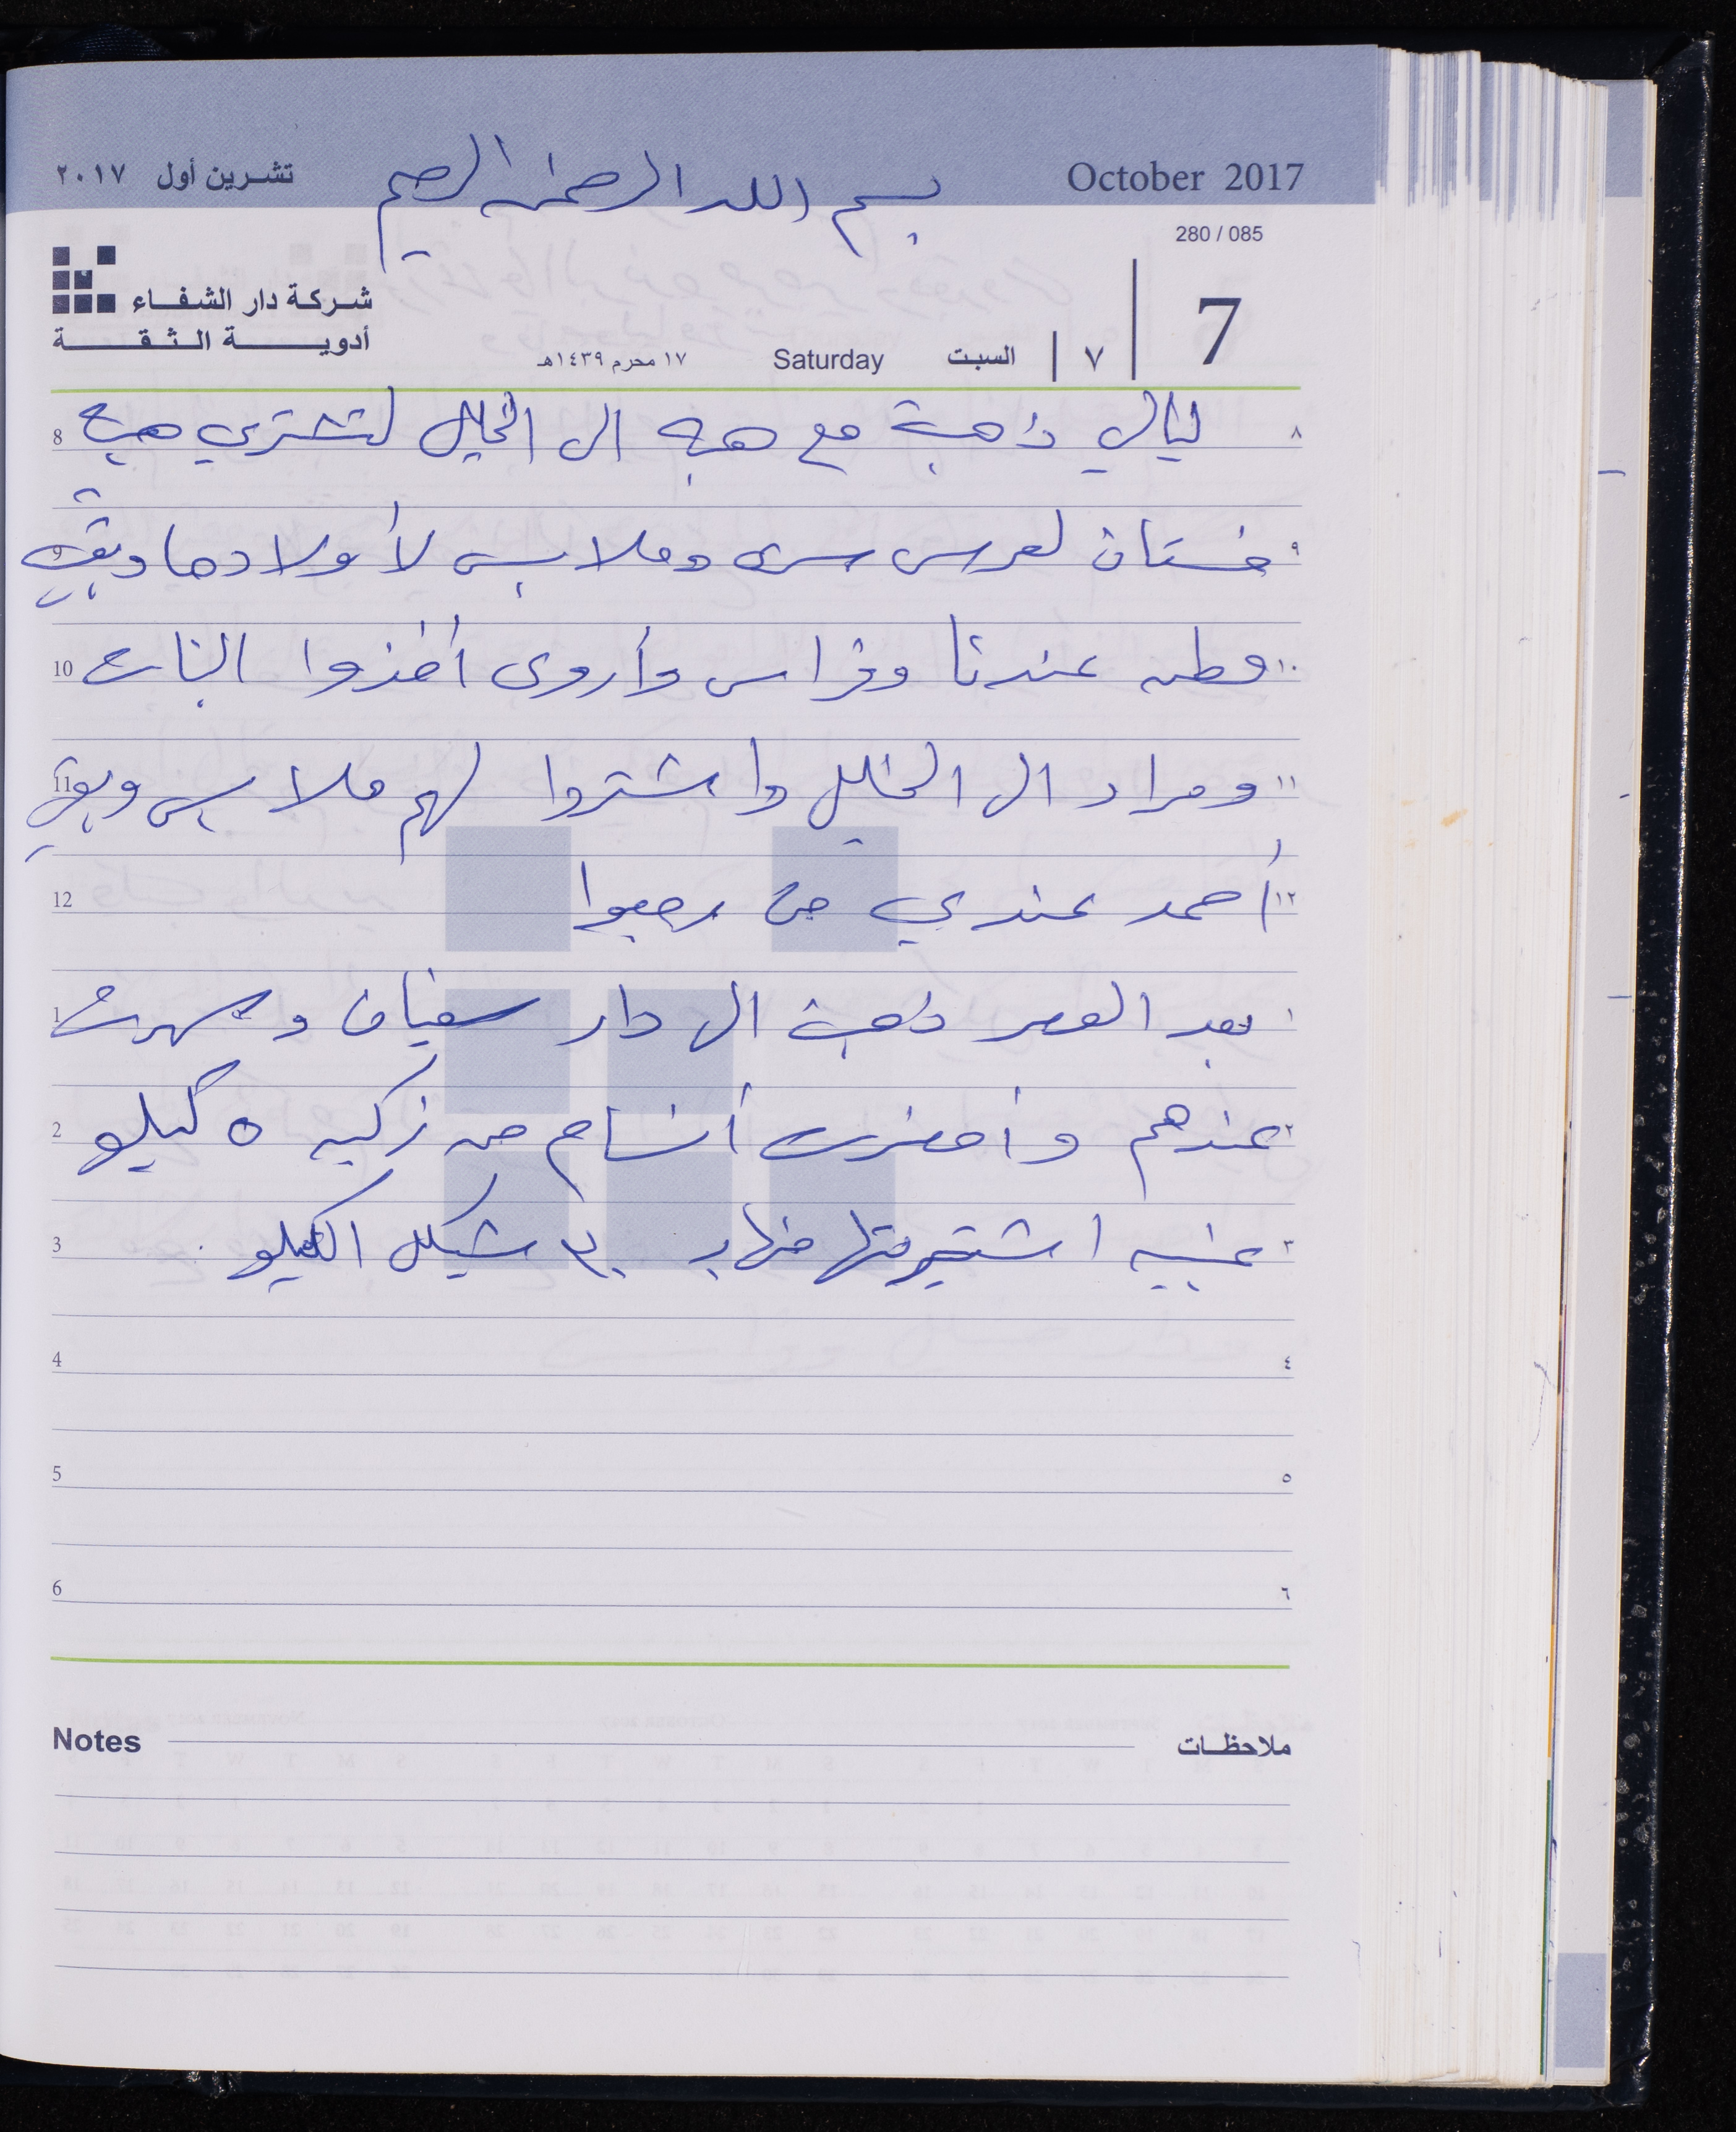 October 2017
بسم الله الرحمن الرحيم
تشرين أول ٢٠١٧
280 / 085
7
٧
السبت
Saturday
١٧ محرم ١٤٣٩هـ
شركة دار الشفاء
أدوية الثقة
٨ ليالي ذهبت مع هبه الى الخليل لتشتري هبه 8
٩ فستان لعرس سرى وملابس لأولادها وبقي 9
١٠ وطن عندنا وفراس وأروى أخذوا البنات 10
١١ ومراد الى الخليل واشتروا لهم ملابس وبقي 11
١٢ أحمد عندي حتى رجعوا 12
١ بعد العصر ذهبت الى دار سفيان وسهرت 1
٢ عندهم وأحضرت أنسام من زكيه ٥ كيلو 2
٣ عنبيه اشتيريتها منها ب ٣ شيكل الكيلو 3
4 ٤
5 ٥
6 ٦
Notes ملاحظات